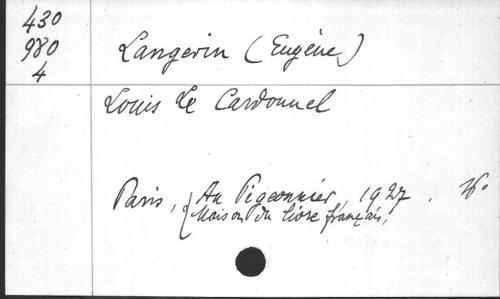 430
980
4
Langevin (Eugène)
Louis Le Cardonnel
Paris, { Au Pigeonnier, 1927.
Maison du livre français,